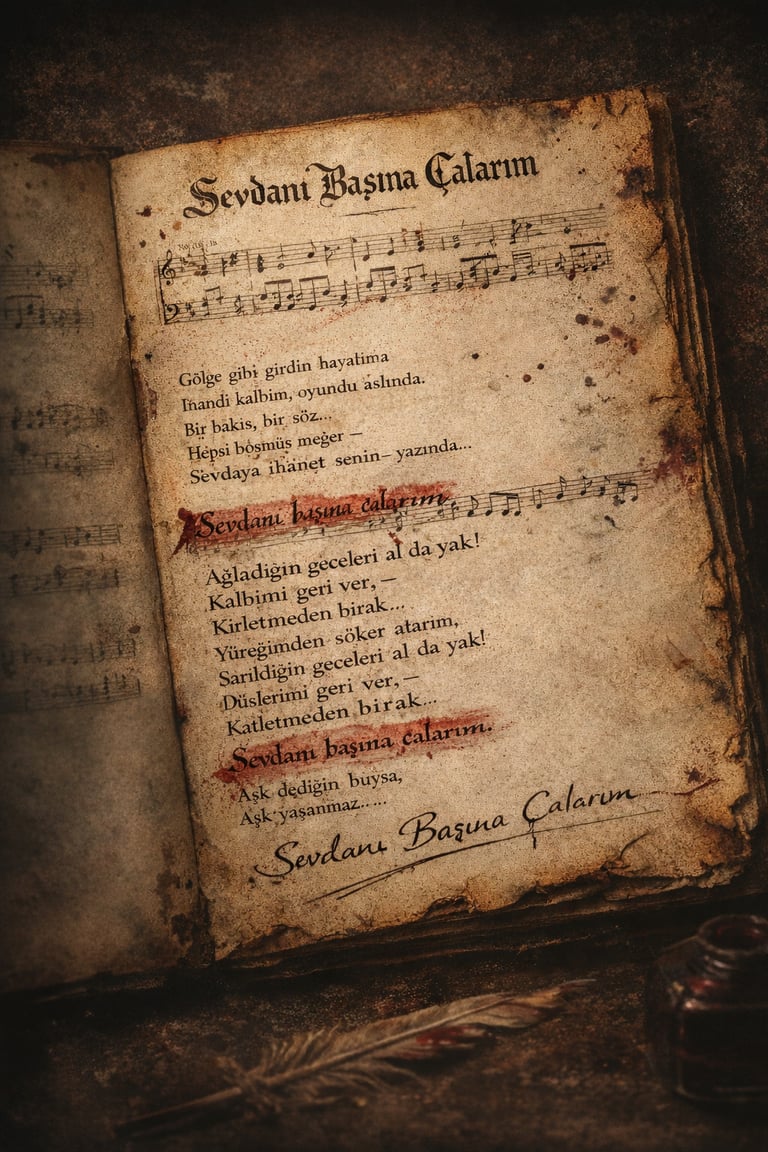 Sevdanı Başına Çalarım
Gölge gibi girdin hayatima
Inandi kalbim, oyundu aslında.
Bir bakis, bir söz...
Hepsi bosmüs meğer —
Sevdaya ihanet senin– yazında...
Sevdanı başına calarım
Ağladiğin geceleri al da yak!
Kalbimi geri ver, —
Kirletmeden birak...
Yüreğimden söker atarim,
Sarildiğin geceleri al da yak!
Düslerimi geri ver, —
Katletmeden birak...
Sevdanı başına calarım.
Aşk dediğin buysa,
Aşk yaşanmaz.....
Sevdanı Başına Çalarım